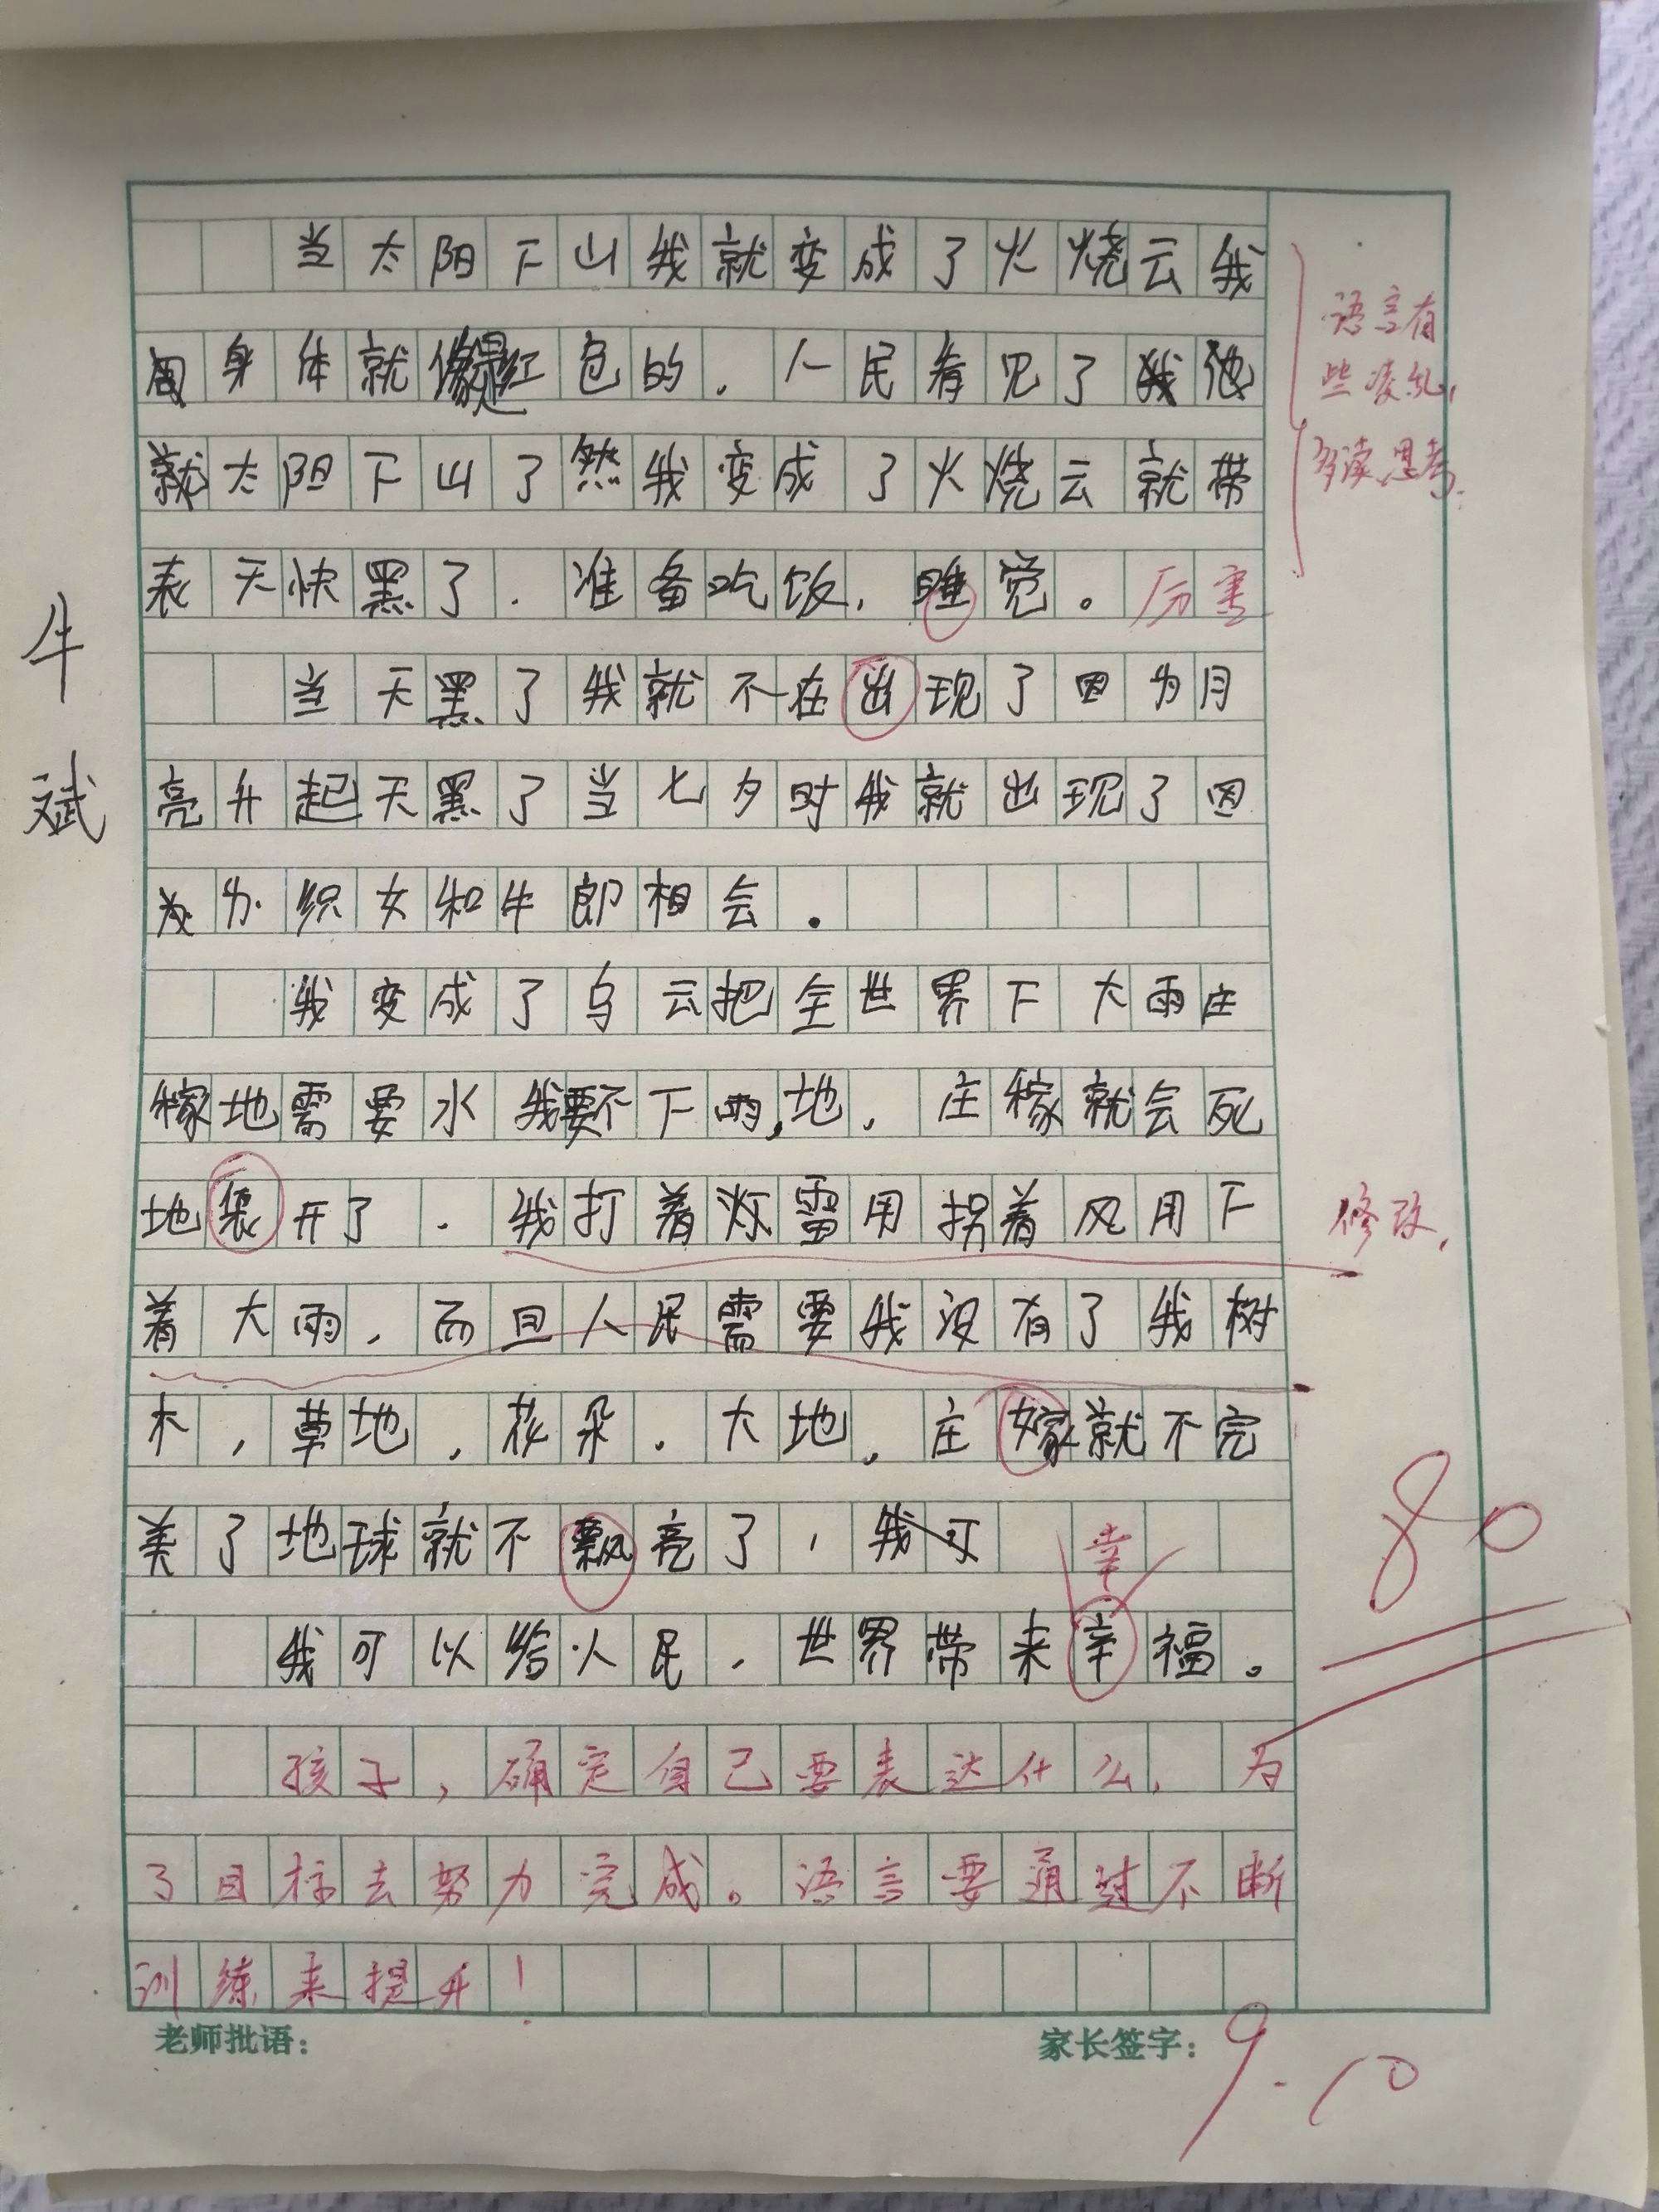 当太阳下山我就变成了火烧云我
周身体就像是红色的.人民看见了我他
就太阳下山了然我变成了火烧云就带
表天快黑了.准备吃饭,睡觉。厉害
当天黑了我就不在出现了因为月
亮升起天黑了当七夕时我就出现了因
为织女和牛郎相会.
我变成了乌云把全世界下大雨庄
稼地需要水我要不下雨,地,庄稼就会死
地裂开了.我打着灯雷用拐着风用下
着大雨,而且人民需要我没有了我树
木,草地,花朵.大地,庄嫁就不完
美了地球就不飘亮了,我可
幸
我可以给人民,世界带来辛福。
孩子,确定自己要表达什么,为
了目标去努力完成。语言要通过不断
训练来提升!
老师批语:
家长签字:
9.10
语言有
些凌乱,
多读思考.
修改,
80
牛
斌